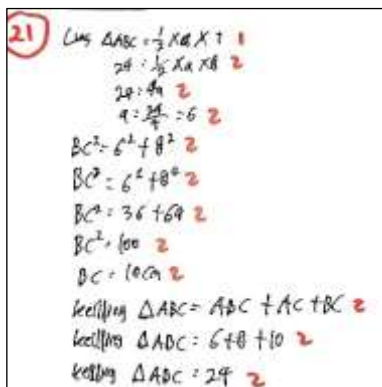 21 Luas ΔABC = 1/2 × a × t 1
24 = 1/2 × a × 8 2
24 = 4a 2
a = 24/4 = 6 2
BC² = 6² + 8² 2
BC² = 6² + 8² 2
BC² = 36 + 64 2
BC² = 100 2
BC = 10cm 2
keliling ΔABC = ABC + AC + BC 2
keliling ΔABC = 6 + 8 + 10 2
keliling ΔABC = 24 2